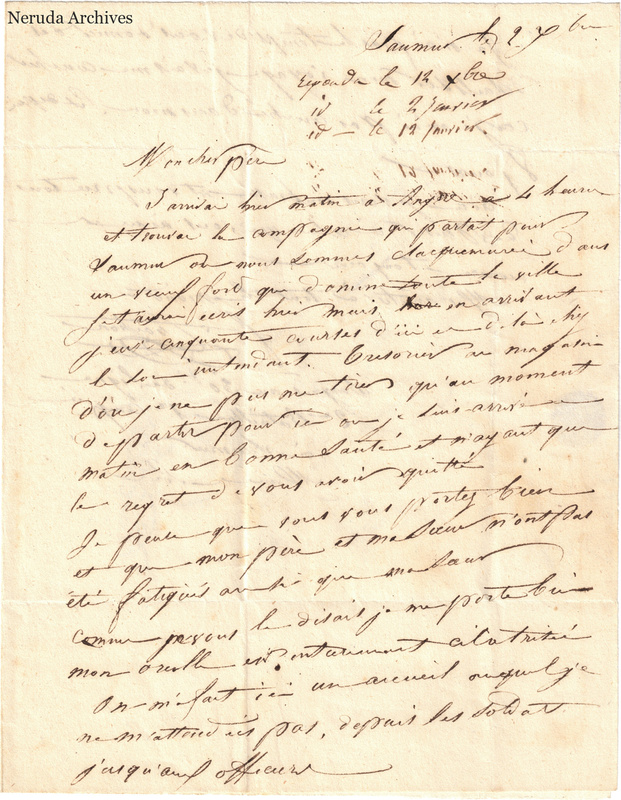 Neruda Archives
Saumur le 2 Xbre
repondu le 12 Xbre
id le 2 Janvier
id – le 12 Janvier.
Mon cher père
J'arrivai hier matin à à 4 heures
et trouvai la campagnie qui partait pour
Saumur où nous sommes claquemurés dans
un vieux fort qui domine toute la ville
Je t'aurai ecris hier mais en arrivant
j'eus cinquante courses d'ici et de là chez
le intendant. Tresorier au magasin
d'où je ne pus me tirer qu'au moment
de partir pour ici ou je suis arrivé ce
matin en bonne santé et n'ayant que
le regret de vous avoir quitté
Je pense que vous vous portez bien
et que mon père et ma Sœur n'ont pas
été fatigués que ma Sœur
comme je vous le disais je me porte bien
mon oreille est entierement cicatrisée
On m'a fait ici un accueil auquel je
ne m'attendais pas, depuis les soldat
jusqu'aux officiers